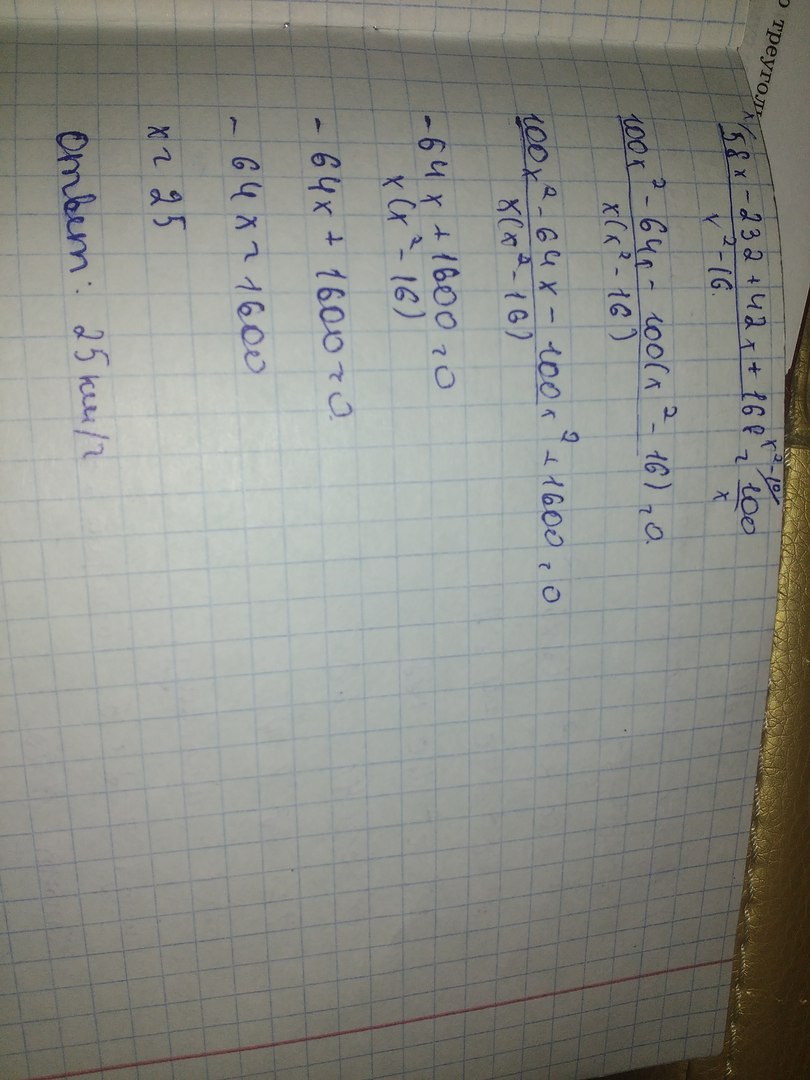 о треуголь
58x - 232 + 42x + 168 = 100
x² - 16 x
100x² - 64x - 100(x² - 16) = 0
x(x² - 16)
100x² - 64x - 100x² + 1600 = 0
x(x² - 16)
-64x + 1600 = 0
x(x² - 16)
- 64x + 1600 = 0
- 64x = 1600
x = 25
Ответ: 25 км/ч